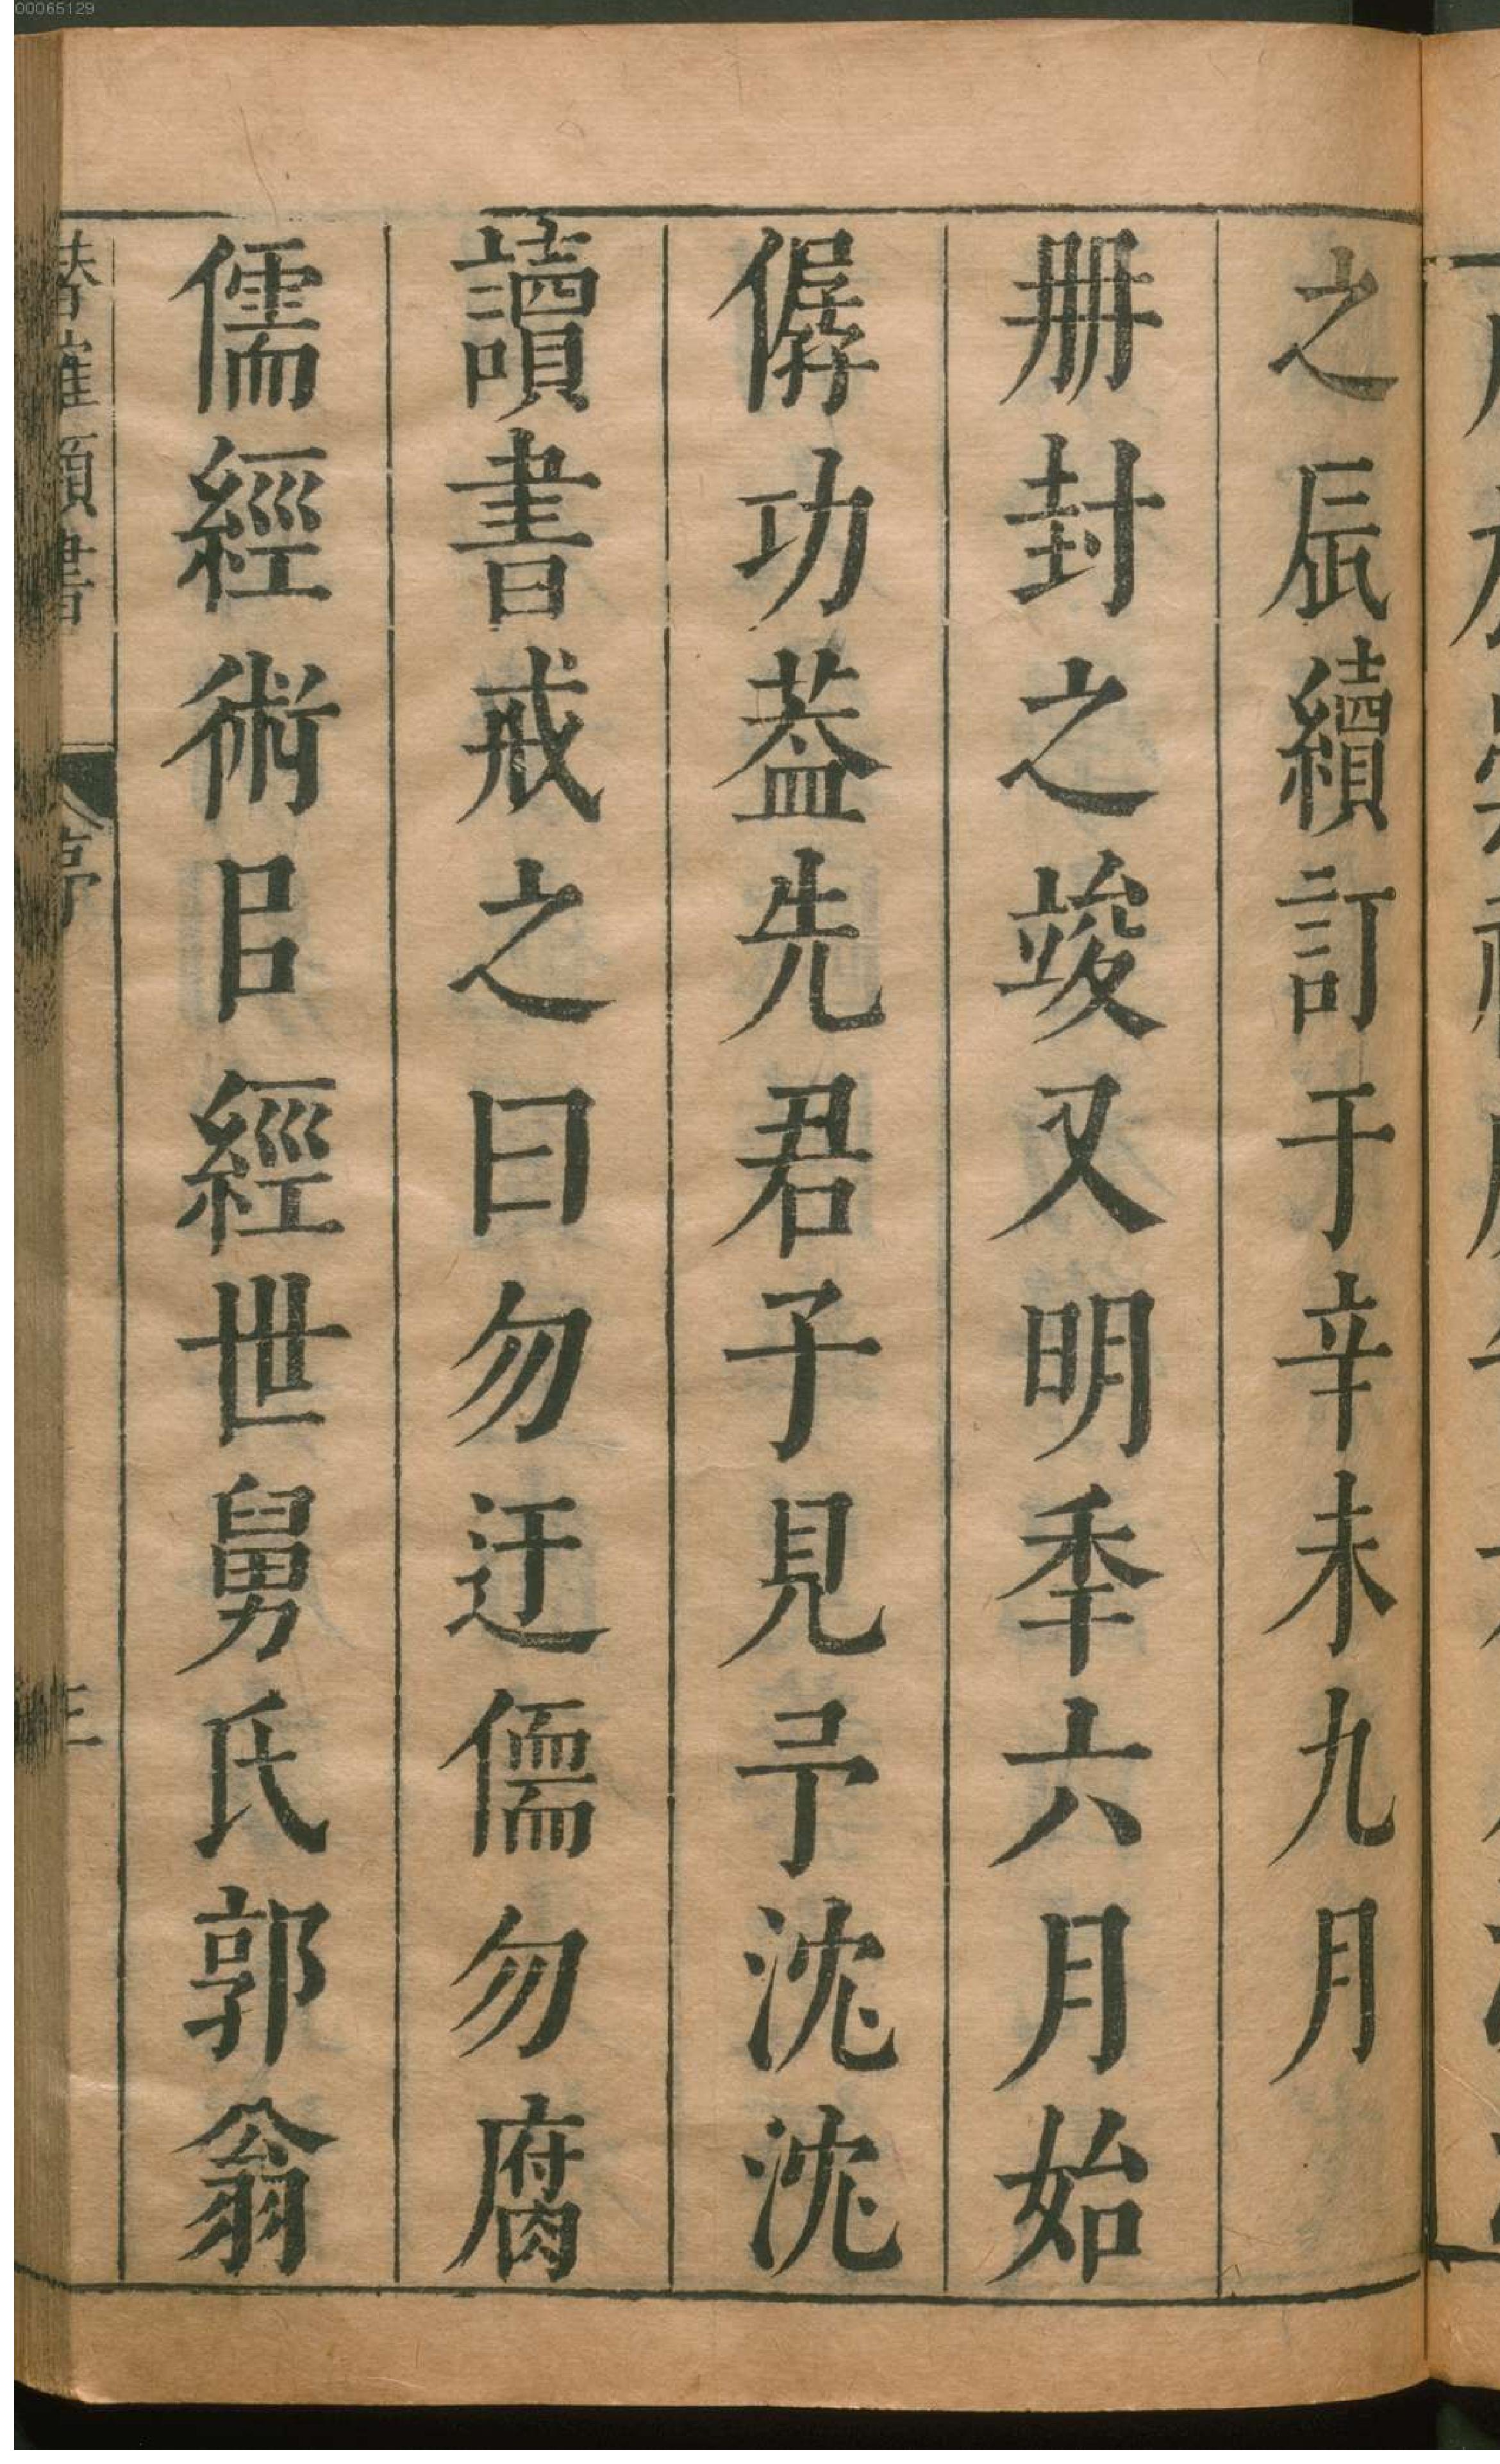 00065129
之辰續訂于辛未九月
册封之竣又明季六月始
僝功葢先君子見予沈沈
讀書戒之曰勿迂儒勿腐
儒經術㠯經世舅氏郭翁
潛確類書
序
三